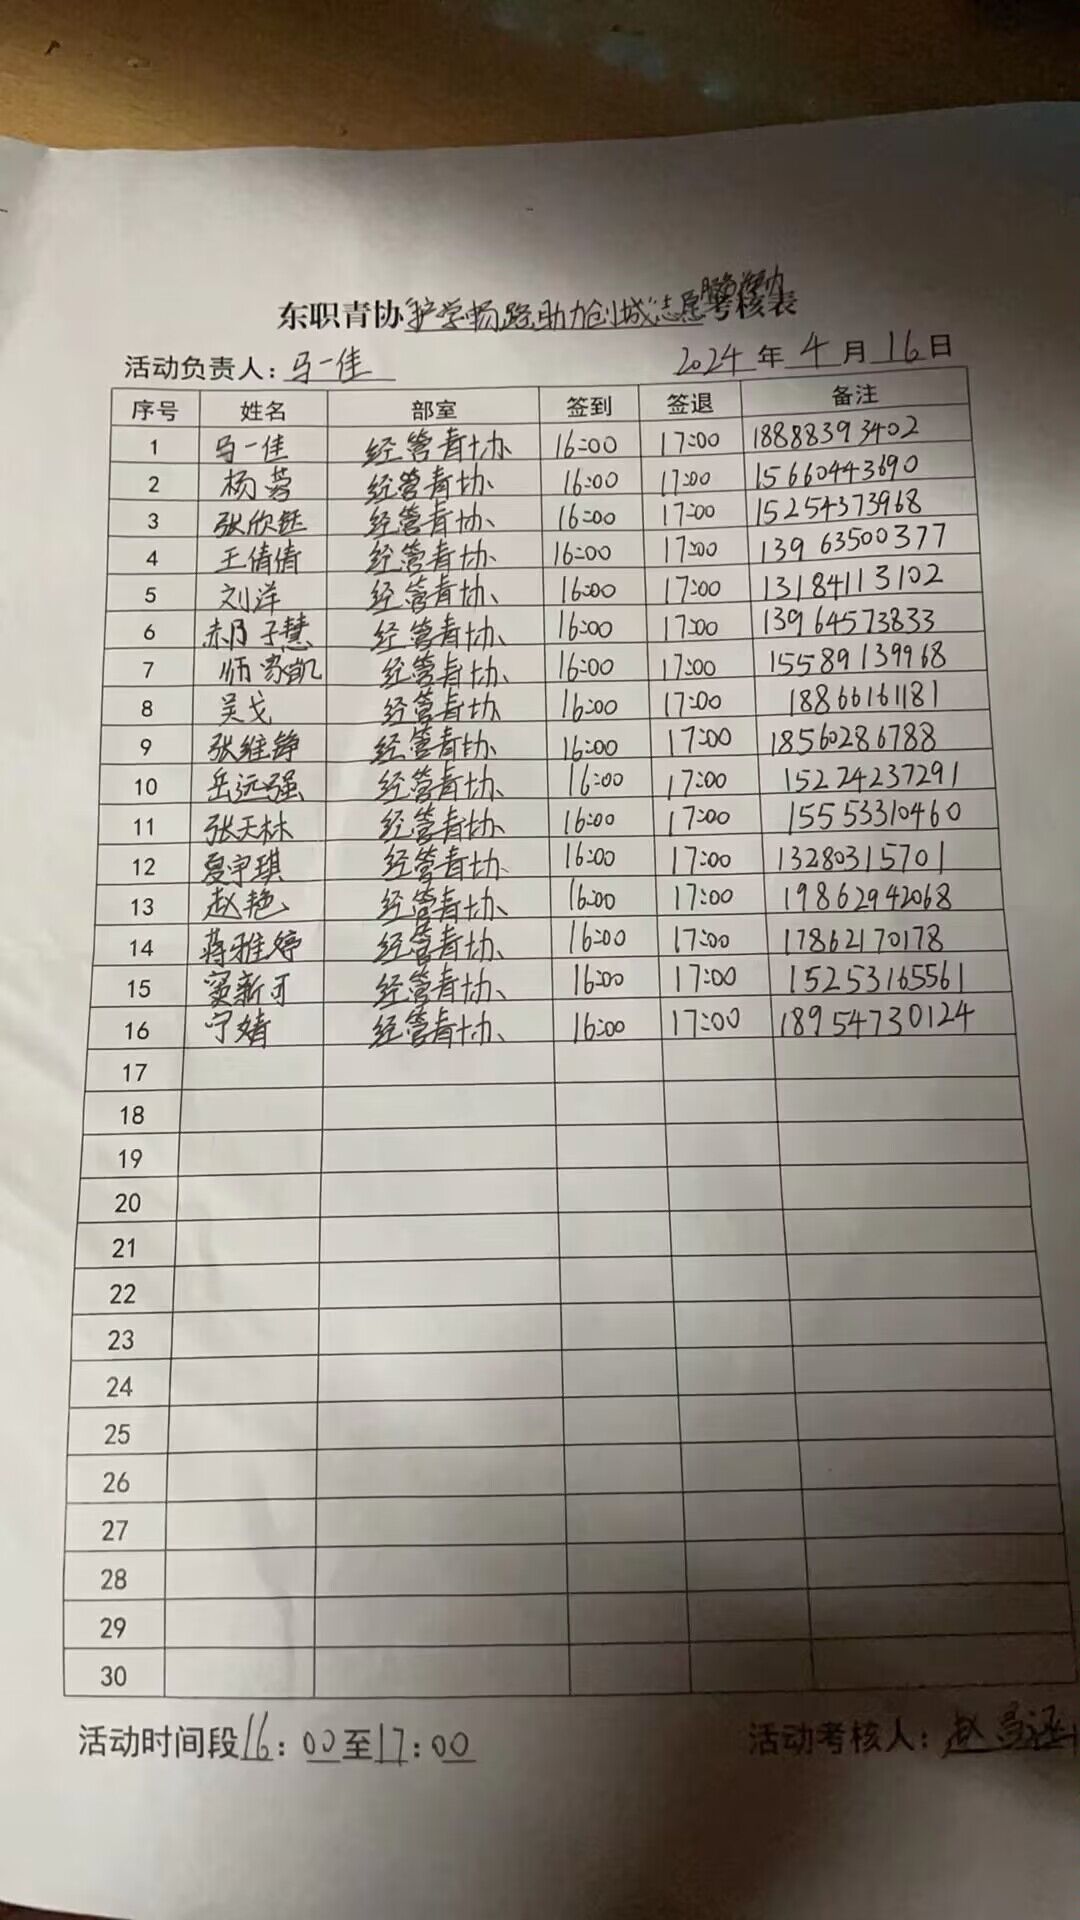 东职青协护学畅路助力创城志愿服务活动考核表
活动负责人：马一佳 2024年4月16日
序号 姓名 部室 签到 签退 备注
1 马一佳 经管青协 16:00 17:00 18888393402
2 杨蓉 经管青协 16:00 17:00 15660443690
3 张欣钰 经管青协 16:00 17:00 15254373968
4 王倩倩 经管青协 16:00 17:00 13963500377
5 刘洋 经管青协 16:00 17:00 13184113102
6 郝子慧 经管青协 16:00 17:00 13964573833
7 师家凯 经管青协 16:00 17:00 15589139968
8 吴戈 经管青协 16:00 17:00 18866161181
9 张维铮 经管青协 16:00 17:00 18560286788
10 岳远强 经管青协 16:00 17:00 15224237291
11 张天林 经管青协 16:00 17:00 15553310460
12 夏宇琪 经管青协 16:00 17:00 13280315701
13 赵艳 经管青协 16:00 17:00 19862942068
14 蒋雅婷 经管青协 16:00 17:00 17862170178
15 窦新可 经管青协 16:00 17:00 15253165561
16 宁婧 经管青协 16:00 17:00 18954730124
17
18
19
20
21
22
23
24
25
26
27
28
29
30
活动时间段16：00至17：00 活动考核人：赵